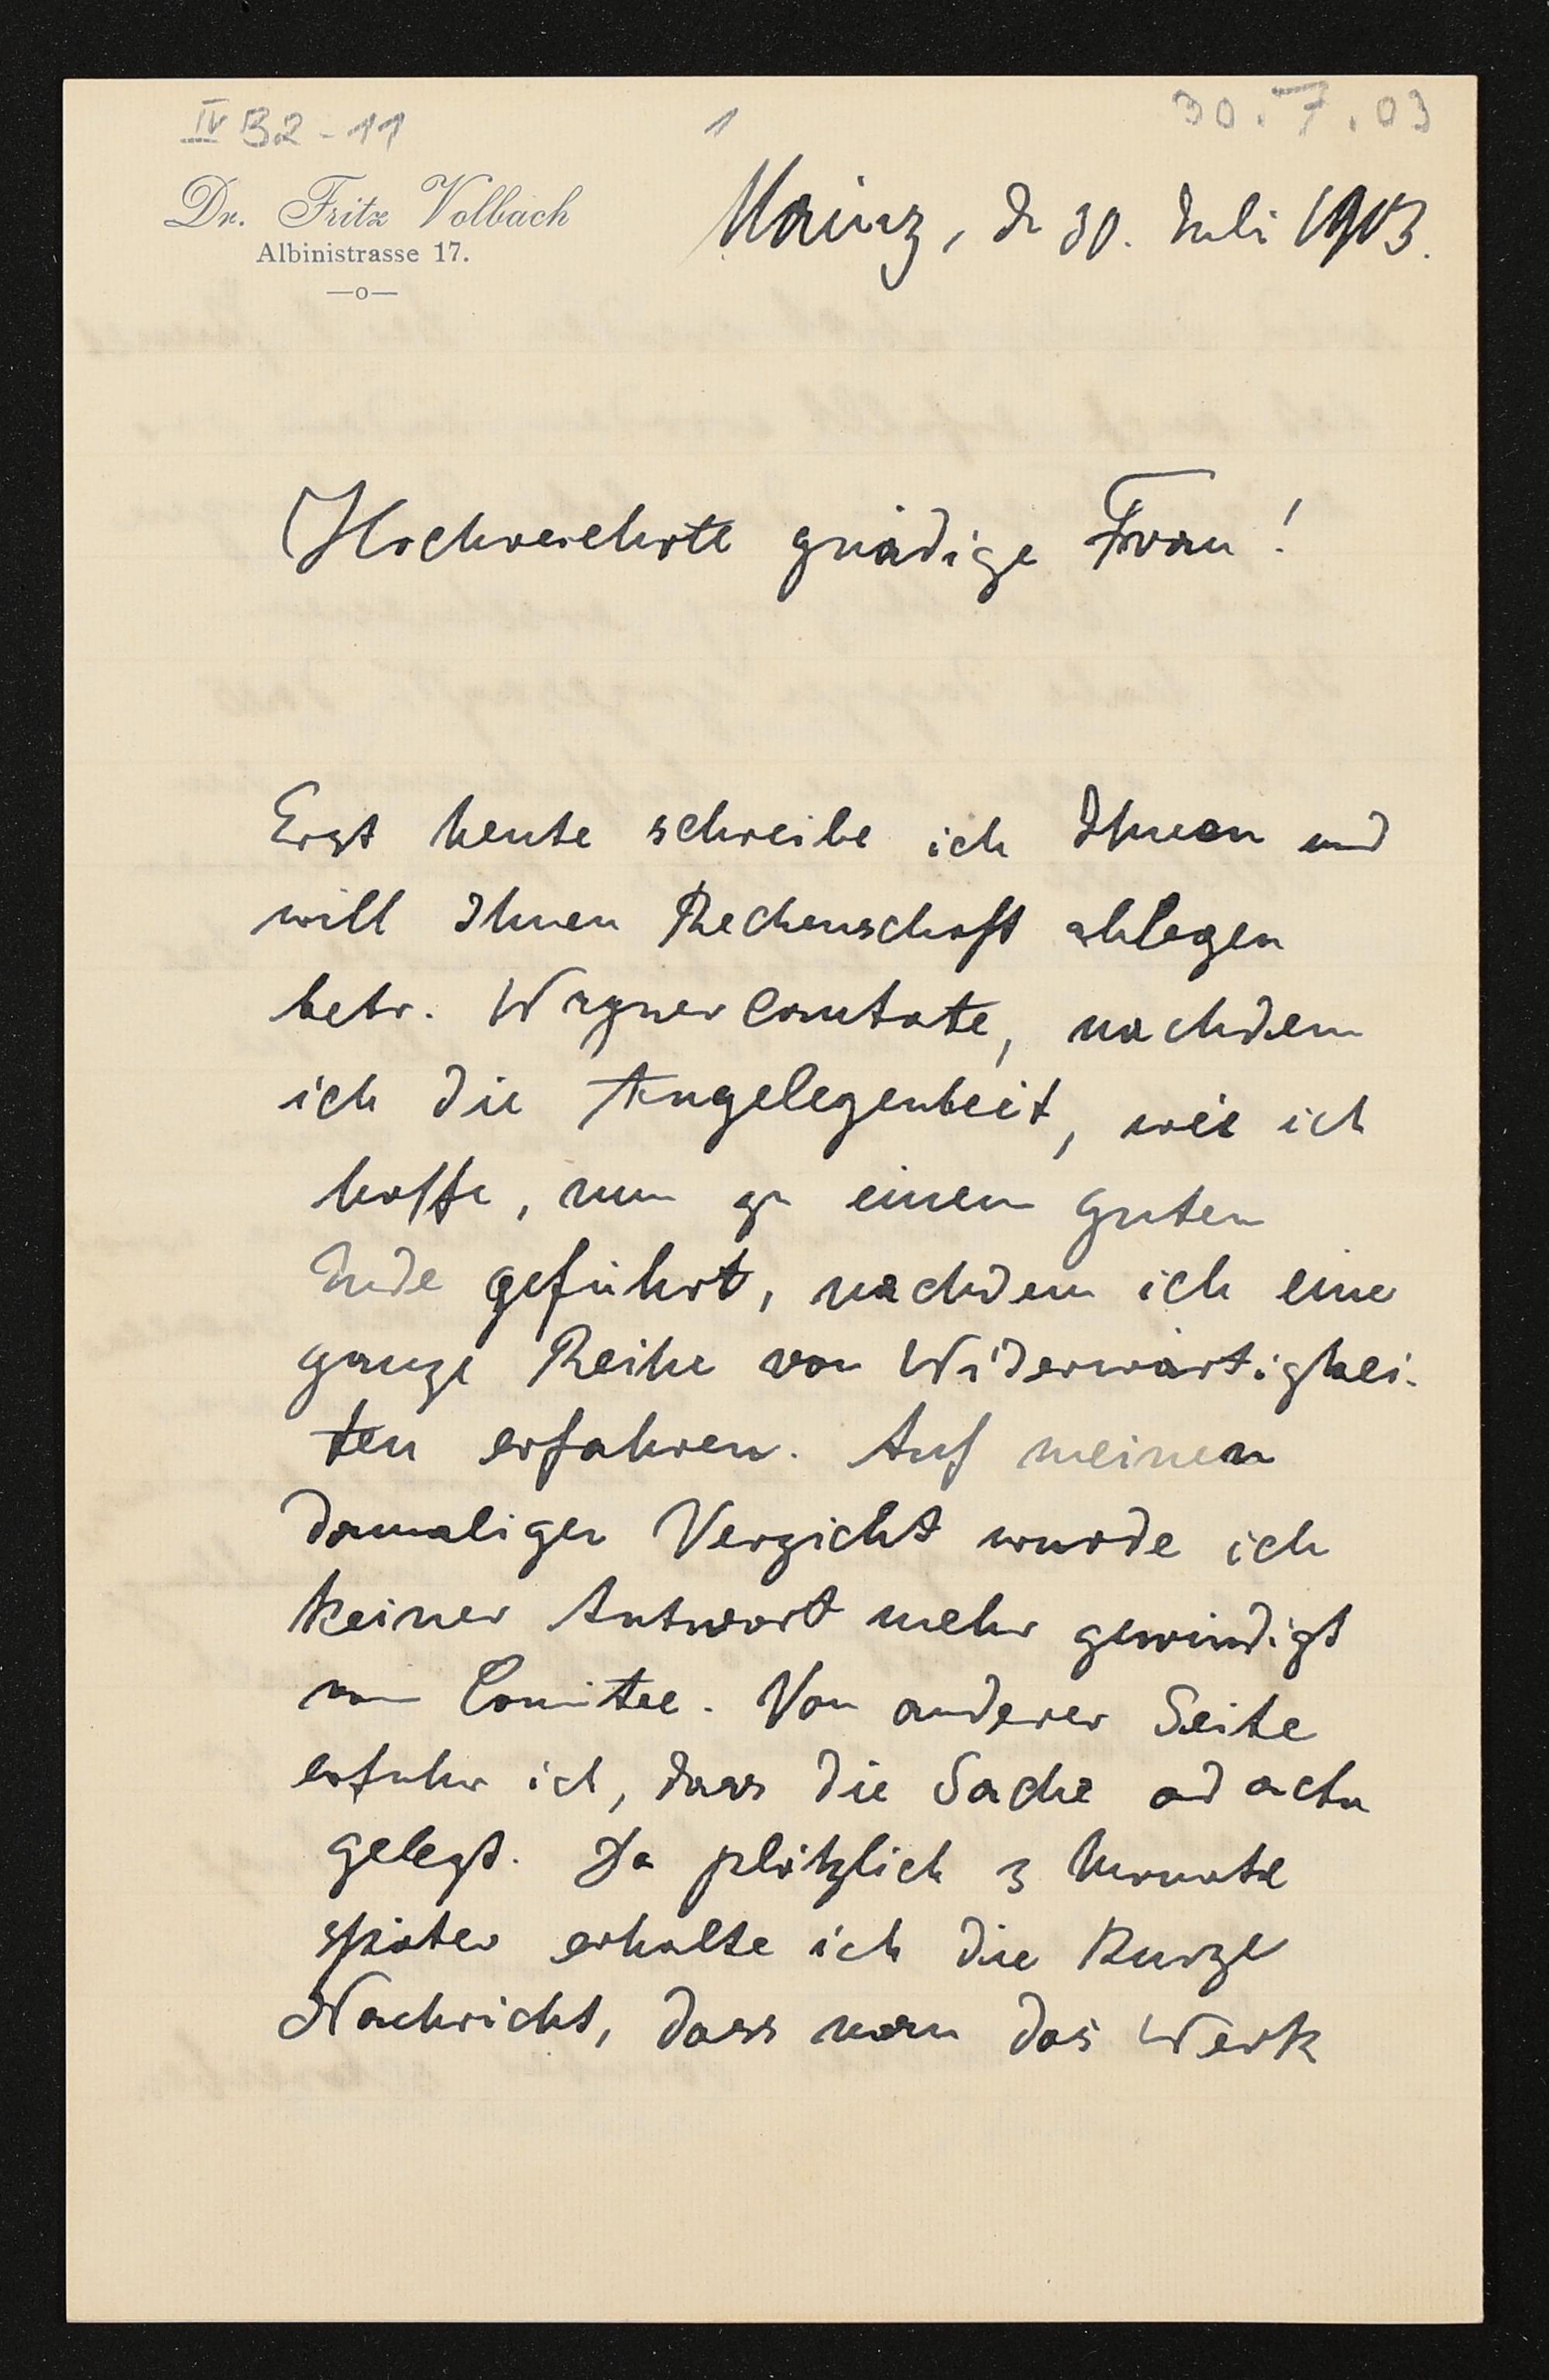 IV B2-11
1
30.7.03
Dr. Fritz Volbach
Albinistrasse 17.
—o—
Mainz, d. 30. Juli 1903.
Hochverehrte gnädige Frau!
Erst heute schreibe ich Ihnen und
will Ihnen Rechenschaft ablegen
betr. Wagner Cantate, nachdem
ich die Angelegenheit, wie ich
hoffe, nun zu einem guten
Ende geführt, nachdem ich eine
ganze Reihe von Widerwärtigkei-
ten erfahren. Auf meinen
damaligen Verzicht wurde ich
keiner Antwort mehr gewürdigt
vom Comitee. Von anderer Seite
erfuhr ich, dass die Sache ad acta
gelegt. Da plötzlich 3 Monate
später erhalte ich die kurze
Nachricht, dass man das Werk